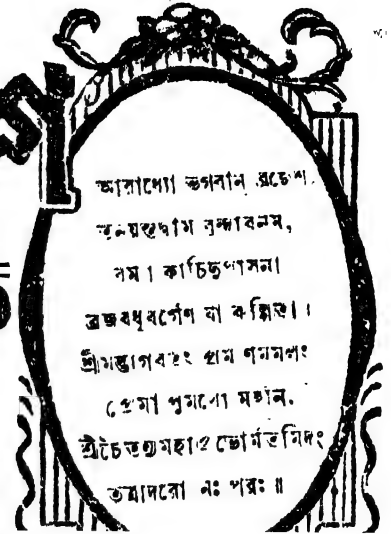 আরাধ্যো ভগবান্ ব্রজেশ-
তনয়স্তদ্ধাম বৃন্দাবনম্,
রম্যা কাচিদুপাসনা
ব্রজবধূবর্গেণ যা কল্পিতা।
শ্রীমদ্ভাগবতং প্রমাণমমলং
প্রেমা পুমর্থো মহান্,
শ্রীচৈতন্যমহাপ্রভোর্মতমিদং
তত্রাদরো নঃ পরঃ॥